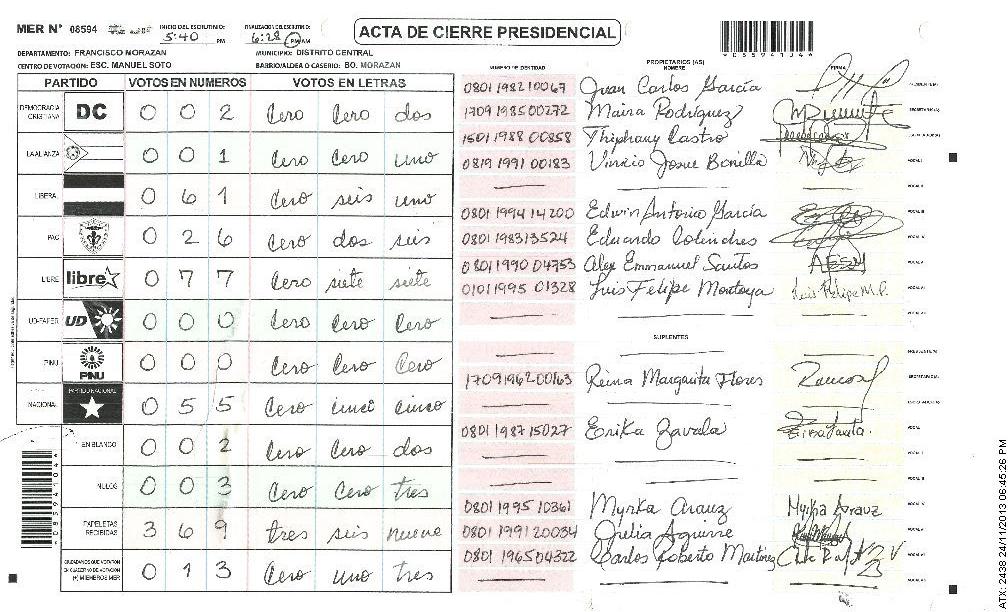 MER N° 08594 INICIO DEL ESCRUTINIO: 5:40 PM FINALIZACION DEL ESCRUTINIO: 6:28 PM AM
ACTA DE CIERRE PRESIDENCIAL
*08594104*
DEPARTAMENTO: FRANCISCO MORAZAN MUNICIPIO: DISTRITO CENTRAL
CENTRO DE VOTACION: ESC. MANUEL SOTO BARRIO/ALDEA O CASERIO: BO. MORAZAN
PARTIDO VOTOS EN NUMEROS VOTOS EN LETRAS
DEMOCRACIA CRISTIANA DC 0 0 2 Cero Cero dos
LA ALIANZA 0 0 1 Cero Cero uno
LIBERAL 0 6 1 Cero seis uno
PAC 0 2 6 Cero dos seis
LIBRE libre 0 7 7 Cero siete siete
UD-FAPER UD 0 0 0 Cero Cero Cero
PINU PINU 0 0 0 Cero Cero Cero
NACIONAL PARTIDO NACIONAL 0 5 5 Cero cinco cinco
EN BLANCO 0 0 2 Cero Cero dos
NULOS 0 0 3 Cero Cero tres
PAPELETAS RECIBIDAS 3 6 9 tres seis nueve
CIUDADANOS QUE VOTARON EN CUADERNO DE VOTACION (+) MIEMBROS MER 0 1 3 Cero uno tres
NUMERO DE IDENTIDAD PROPIETARIOS (AS) NOMBRE FIRMA
0801 1982 10067 Juan Carlos García PRESIDENTE(A)
1709 1985 00272 Maira Rodríguez SECRETARIO(A)
1501 1988 00858 Thiphany Castro
0819 1991 00183 Vinicio Josue Bonilla VOCAL I
VOCAL II
0801 1994 14200 Edwin Antonio García VOCAL III
0801 1983 13524 Eduardo Colindres VOCAL IV
0801 1990 04753 Alex Emmanuel Santos AESM VOCAL V
0101 1995 01328 Luis Felipe Montoya Luis Felipe M.P. VOCAL VI
SUPLENTES
PRESIDENTE(A)
1709 1962 00163 Reina Margarita Flores SECRETARIO(A)
0801 1987 15027 Erika Zavala VOCAL I
0801 1995 10361 Myrka Arauz Myrka Arauz
0801 1991 20034 Julia Aguirre
0801 1965 04322 Carlos Roberto Martinez
*08594104*
ATX: 2438 24/11/2013 06:45:26 PM